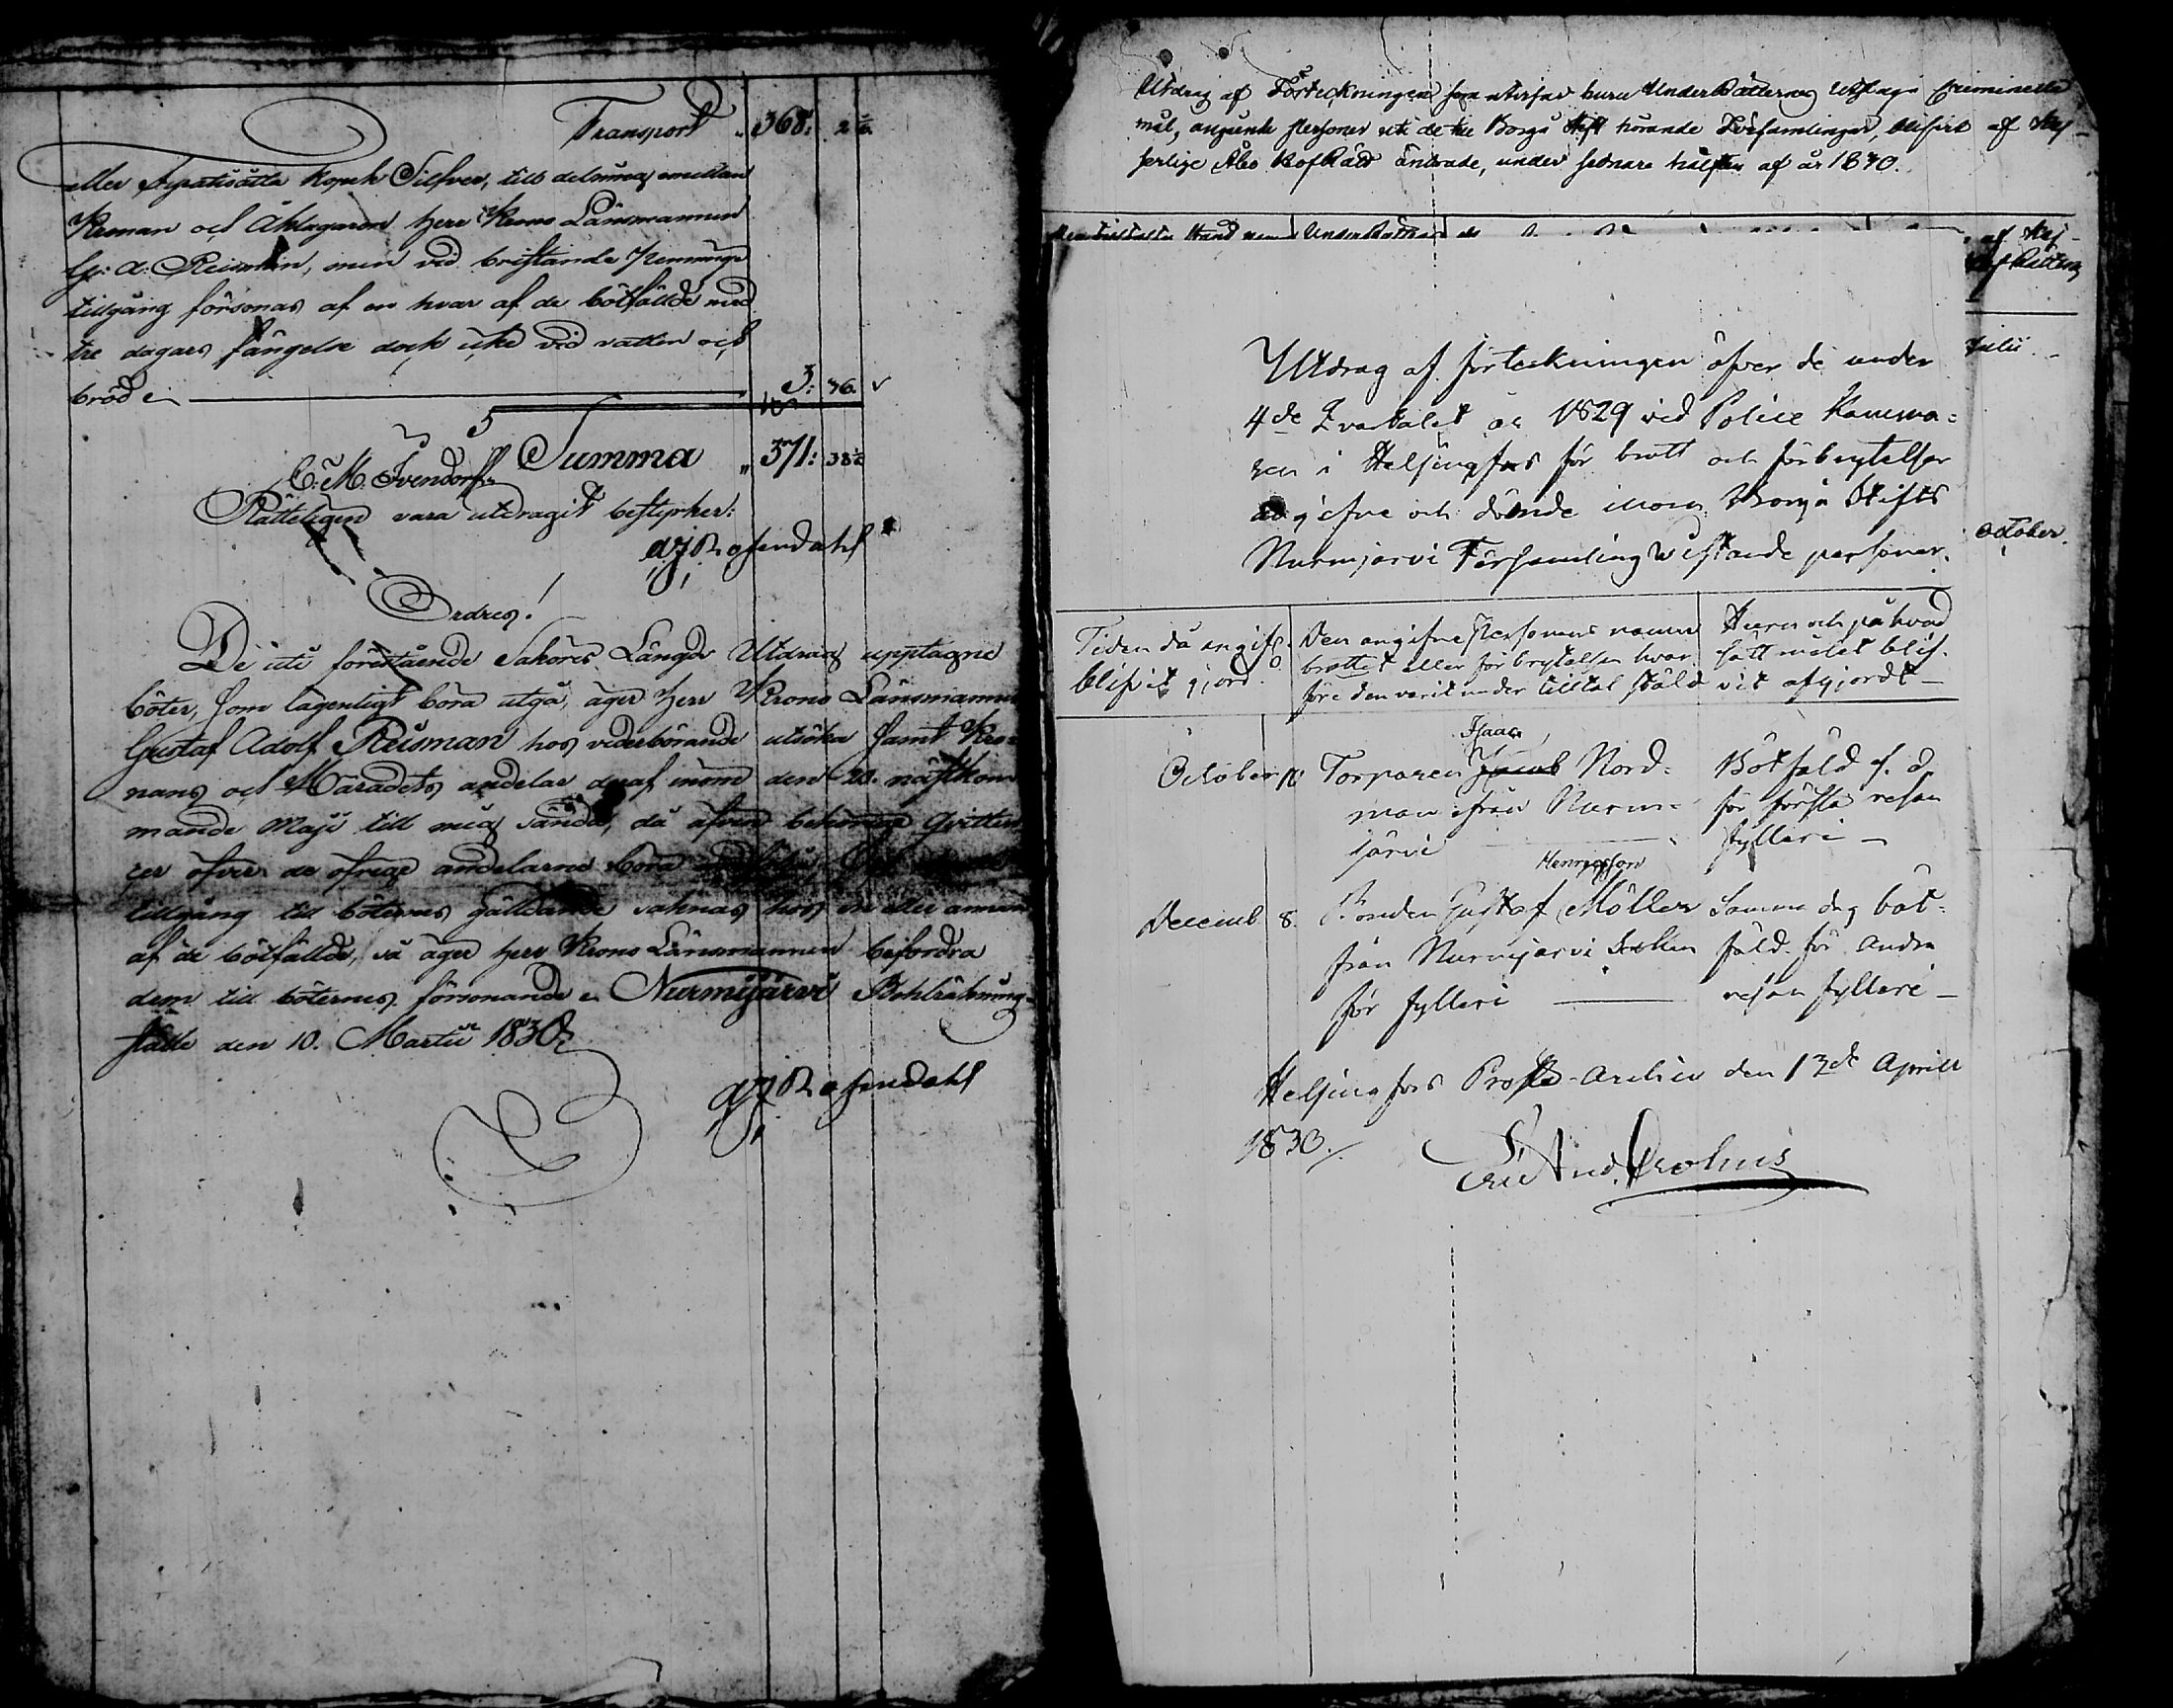 Transport 368: 2
eller sjuttisätta kopek Silfver, till delning emellan
Kronan och Åklagaren Herr Krono Länsmannen
G: A: Reisman, men vid bristande penninge
tillgång försonas af en hvar af de bötfällde med
tre dagars fängelse dock icke vid vatten och
bröd 3: 36.
Summa 371: 38
Rätteligen vara utdragit bestyrker:
Rosendahl
Ordres!
De uti förestående Saköres Längds Utdrag upptagne
böter, som lagenligt böra utgå, äger Herr Krono Länsmannen
Gustaf Adolf Reisman hos vederbörande utsöka samt Kro-
nans och Häradets andelar deraf inom den 20. nästkom
mande Maji till mig sända, då äfven behörige Qvitten
cer öfver de öfrige andelarne böra
tillgång till böternes gäldande saknas hos en eller annan
af de bötfällde, så äger Herr Krono Länsmannen befordra
dem till böternes försonande. Nurmijärvi Bohlräkning-
ställe den 10. Martii 1830
Rosendahl
Utdrag af Förteckningen som utvisar huru UnderRätternes Utslag i Criminella
mål, angående personer uti de till Borgå Stift hörande Församlingar, blifvit af Kej-
serlige Åbo HofRätt ändrade, under sednare hälften af år 1830.
af Kej-
HofRätten
Julii
October.
Utdrag af förteckningen öfver de under
4de Qvartalet år 1829 vid Police Kamma-
ren i Helsingfors för brott och förbrytelser
angifne och dömde inom Borgå Stifts
Nurmijarvi Församling vistande personer.
Tiden då angift blifvit gjord.
Den angifne personens namn brottet eller förbrytelsen hvar före den varit under tilltal stäld
Huru och på hvad sätt målet blif- vit afgjordt
Isaac
October Torparen Jacob Nord- Bötfäld s. d.
man från Nurmi- för första resan
järvi fylleri
Henricsson
Decemb 8. Bonden Gustaf Möller Samma dag böt-
från Nurmijarvi Socken fäld för andra
för fylleri resan fylleri
Helsingfors Prosts-Archiv den 13de April
1830.